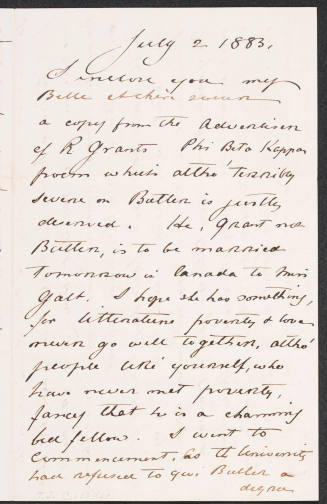 July 2 1883.
I inclose you my
Belle et chère
a copy from the Advertiser
of R Grants Phi Beta Kappa
poem which altho' terribly
severe on Butler is justly
deserved. He, Grant not
Butler, is to be married
tomorrow in Canada to Miss
Galt. I hope she has something,
for litterature poverty & love
never go well together, altho'
people like yourself, who
have never met poverty,
fancy that he is a charming
bed fellow. I went to
Commencement, as the University
had refused to give Butler a
degree